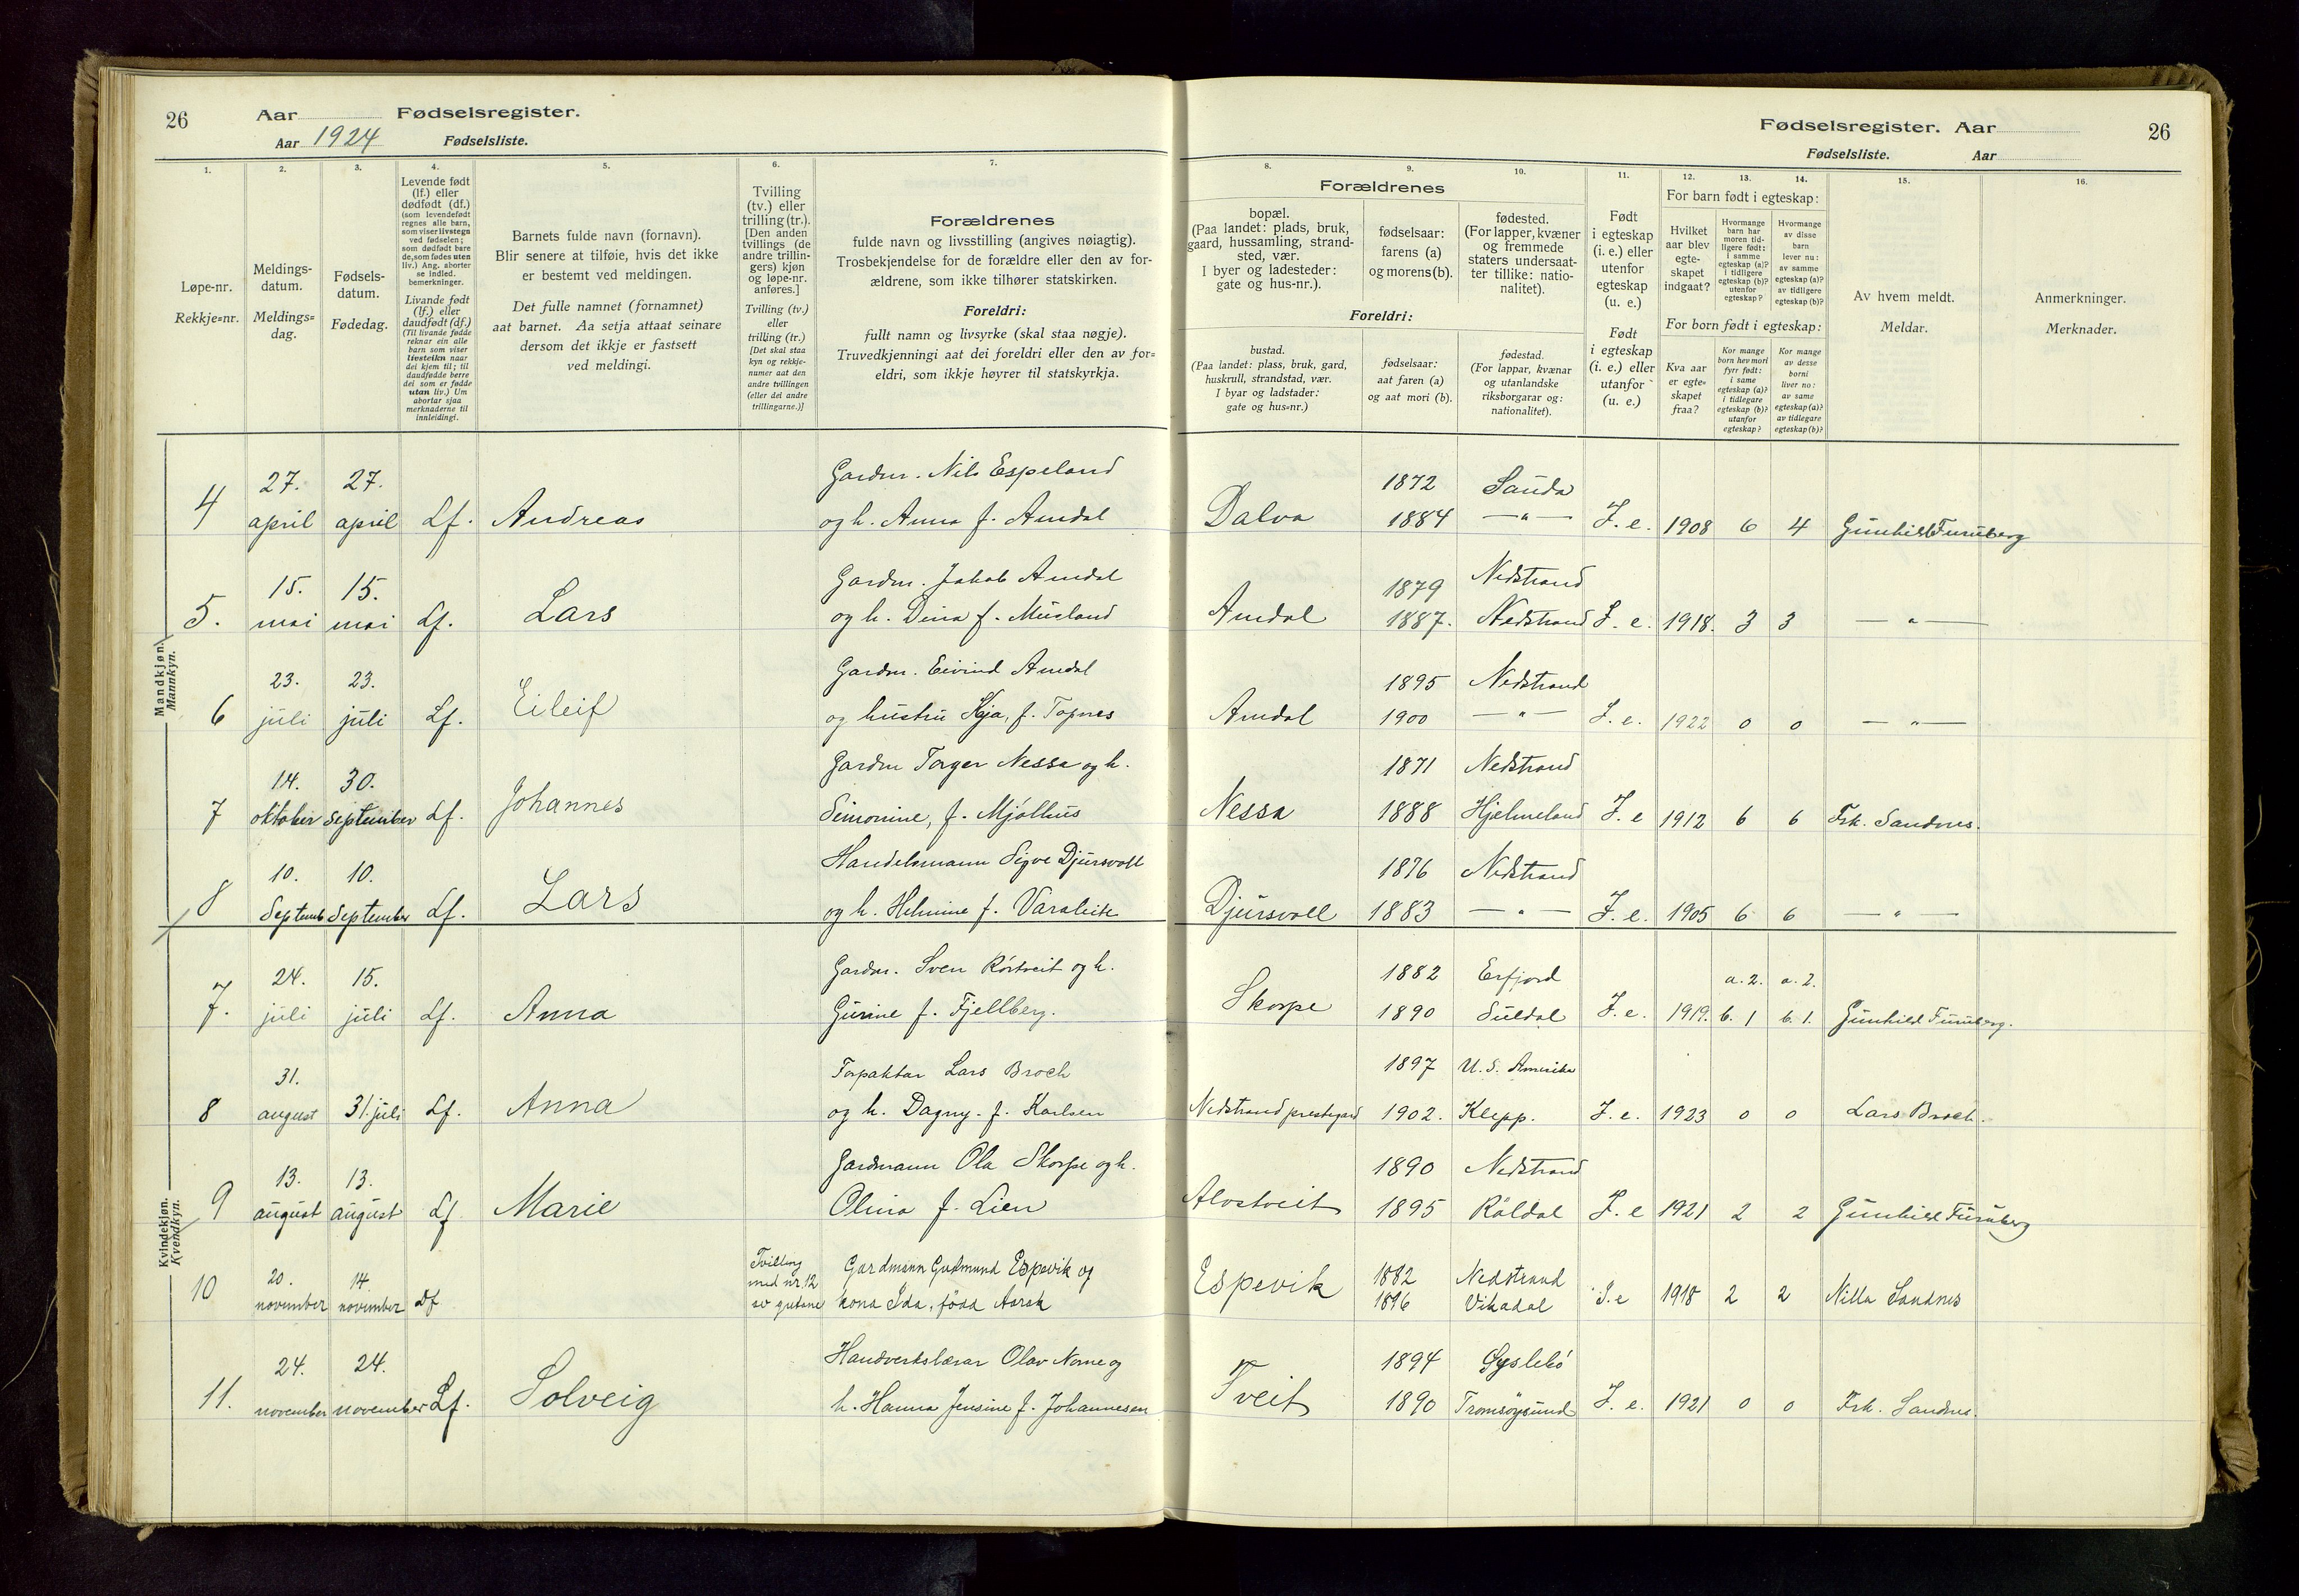 26 Aar Fødselsregister.
Aar 1924 Fødselsliste.
Fødselsregister. Aar 26
Fødselsliste. Aar
1. 2. 3. 4. 5. 6. 7.
Løpe-nr.
Rekkje=nr.
Meldings-
datum.
Meldings=
dag.
Fødsels-
datum.
Fødedag.
Levende født
(lf.) eller
dødfødt (df.)
(som levendefødt
regnes alle barn,
som viser livstegn
ved fødselen;
som dødfødt bare
de, som fødes uten
liv.) Ang. aborter
se indled.
bemerkninger.
Livande født
(lf.) eller
daudfødt (df.)
(Til livande fødde
reknar ein alle
barn som viser
livsteikn naar
dei kjem til; til
daudfødde berre
dei som er fødde
utan liv.) Um
abortar sjaa
merknaderne til
innleidingi.
Barnets fulde navn (fornavn).
Blir senere at tilføie, hvis det ikke
er bestemt ved meldingen.
Det fulle namnet (fornamnet)
aat barnet. Aa setja attaat seinare
dersom det ikkje er fastsett
ved meldingi.
Tvilling
(tv.) eller
trilling (tr.).
[Den anden
tvillings (de
andre trillin-
gers) kjøn
og løpe-nr.
anføres.]
Tvilling (tv.)
eller
trilling (tr.)
[Det skal staa
kyn og rekkje-
numer aat den
andre tvillingen
(eller dei andre
trillingarne.)]
Forældrenes
fulde navn og livsstilling (angives nøiagtig).
Trosbekjendelse for de forældre eller den av for-
ældrene, som ikke tilhører statskirken.
Foreldri:
fullt namn og livsyrke (skal staa nøgje).
Truvedkjenningi aat dei foreldri eller den av for=
eldri, som ikkje høyrer til statskyrkja.
8. 9. 10. 11. 12. 13. 14. 15. 16.
Forældrenes
bopæl.
(Paa landet: plads, bruk,
gaard, hussamling, strand-
sted, vær.
I byer og ladesteder:
gate og hus-nr.).
fødselsaar:
farens (a)
og morens(b).
fødested.
(For lapper, kvæner
og fremmede
staters undersaat-
ter tillike: natio-
nalitet).
Foreldri:
bustad.
(Paa landet: plass, bruk, gard,
huskrull, strandstad, vær.
I byar og ladstader:
gate og hus=nr.)
fødselsaar:
aat faren (a)
og aat mori (b).
fødestad.
(For lappar, kvænar
og utanlandske
riksborgarar og:
nationalitet).
Født
i egteskap
(i. e.) eller
utenfor
egteskap
(u. e.)
Født
i egteskap
(i. e.) eller
utanfor
(u. e.)
For barn født i egteskap:
Hvilket
aar blev
egte-
skapet
indgaat?
Hvormange
barn har
moren tid-
ligere født:
i samme
egteskap (a)?
i tidligere
egteskap (b)?
utenfor
egteskap?
Hvormange
av disse
barn
lever nu:
av samme
egteskap (a)?
av tidligere
egteskap (b)?
For born født i egteskap:
Kva aar
er egte=
skapet
fraa?
Kor mange
born hev mori
fyrr født:
i same
egteskap (a)?
i tidlegare
egteskap (b)?
utanfor
egteskap?
Kor mange
av desse
borni
liver no:
av same
egteskap (a)?
av tidlegare
egteskap (b)?
Av hvem meldt.
Meldar.
Anmerkninger.
Merknader.
Mandkjøn.
Mannkyn.
27. 27. Gardm. Nils Espeland 1872 Sauda
4 april april Lf. Andreas og h. Anna f. Amdal Dalva 1884 — " — I. e. 1908 6 4 Gunhild Furuberg
15. 15. Gardm. Jakob Amdal 1879 Nedstrand
5. mai mai Lf. Lars og h. Dina f. Musland Amdal 1887. Nedstrand I. e. 1918. 3 3 — " —
23. 23. Gardm. Eivind Amdal 1895 Nedstrand
6 juli juli Lf. Eileif og hustru Kja, f. Topnes Amdal 1900 — " — I. e. 1922 0 0 — " —
14. 30. Gardm Torger Nessa og h. 1871 Nedstrand
7 oktober September Lf. Johannes Simonine, f. Mjølhus Nessa 1888 Hjelmeland I. e 1912 6 6 Frk. Sandnes.
10. 10. Handelsmann Sigve Djursvoll 1876 Nedstrand
8 Septemb September Lf. Lars og h. Helmine f. Varaleite Djursvoll 1883 — " — I. e. 1905 6 6 — " —
Kvindekjøn.
Kvendkyn.
24. 15. Gardm. Sven Rørtveit og h. 1882 Erfjord a. 2. a. 2.
7. juli juli Lf. Anna Gurine f. Fjellberg. Skorpe 1890 Suldal I. e. 1919. b. 1 b. 1. Gunhild Furuberg.
31. Forpaktar Lars Broch 1897 U. S. Amerika
8 august 31. juli Lf. Anna og h. Dagny. f. Karlsen Nedstrand prestegard 1902. Klepp. I. e. 1923 0 0 Lars Broch.
13. 13. Gardmann Ola Skorpe og h. 1890 Nedstrand
9 august august Lf Marie Olina f. Lien Alvstveit 1895 Røldal I. e 1921 2 2 Gunhild Furuberg
20. 14. Tvilling med nr. 12 Gardmann Gudmund Espevik og 1882 Nedstrand
10 november november Df av gutane kona Ida, fødd Aarsk Espevik 1896 Vikadal I. e 1918 2 2 Nilla Sandnes
24. 24. Handverkslærar Olav Nome og 1894 Øyslebø
11. november november Lf. Solveig h. Hanna Jensine f. Johannesen Tveit 1890 Tromsøysund I. e. 1921 0 0 Frk. Sandnes.